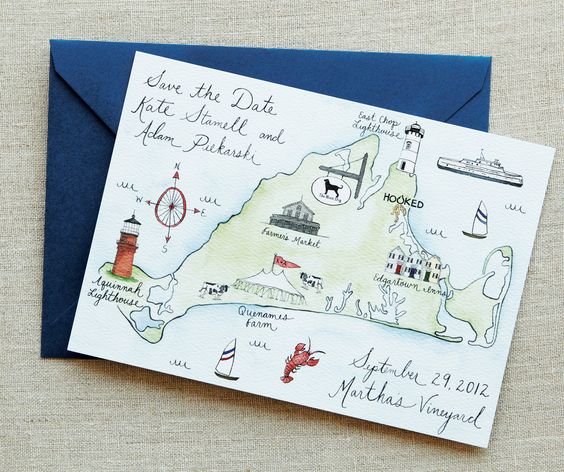 Save the Date
Kate Stamell and
Adam Piekarski
East Chop
Lighthouse
N
W
E
S
The Black Dog
HOOKED
Farmer's Market
Edgartown Inn
Aquinnah
Lighthouse
Quenames
Farm
September 29, 2012
Marthas Vineyard